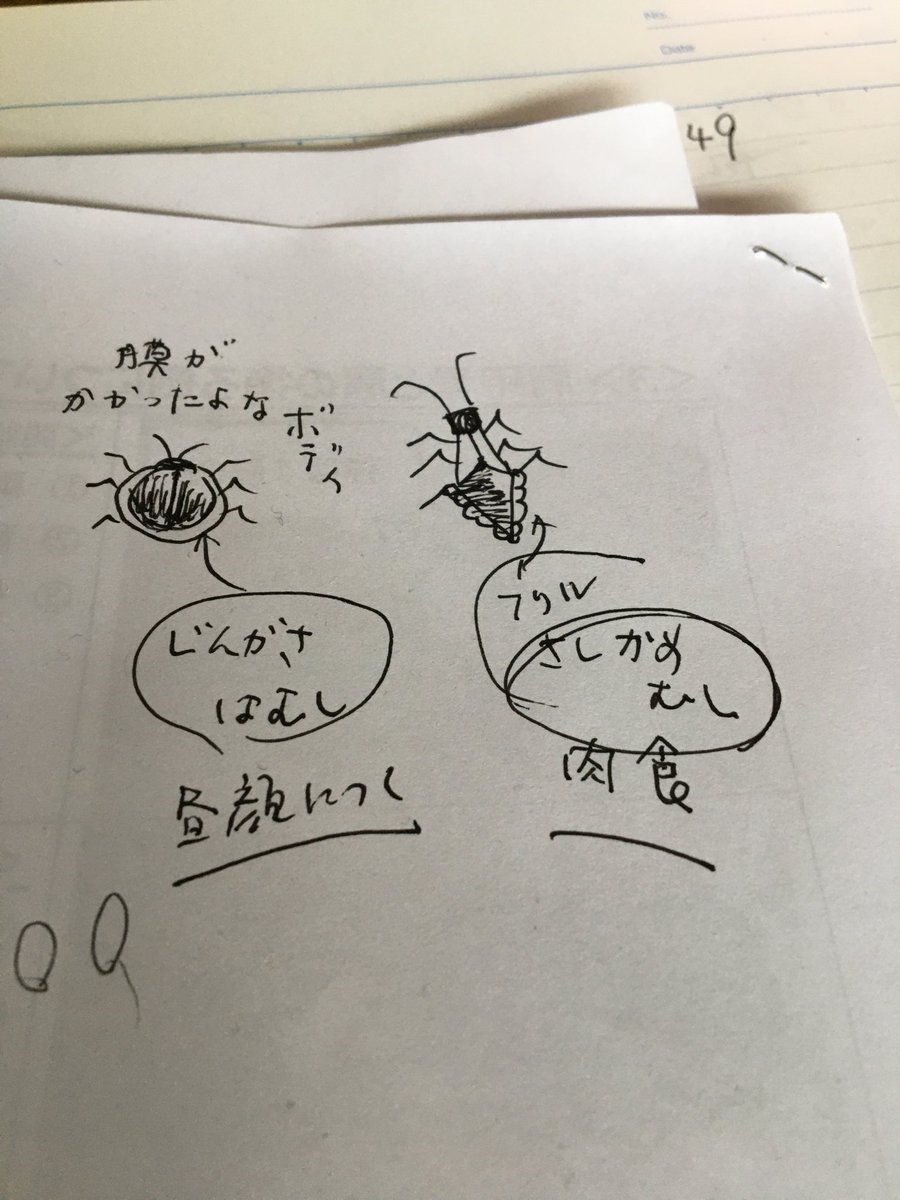 No.
Date
49
膜が
かかったよな
ボディ
じんがさ
はむし
昼顔につく
フリル
さしかめ
むし
肉食